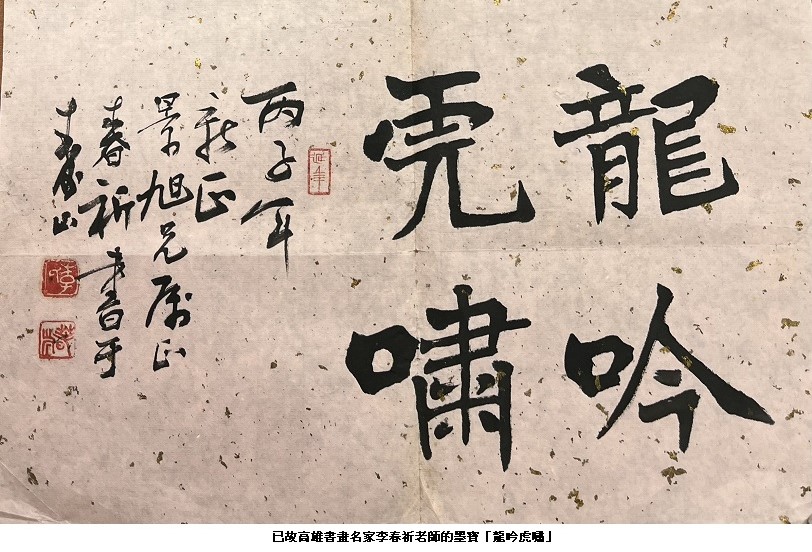 龍吟
虎嘯
延年
丙子年
新正
景旭兄属正
春祈書于
壽山
已故高雄書畫名家李春祈老師的墨寶「龍吟虎嘯」